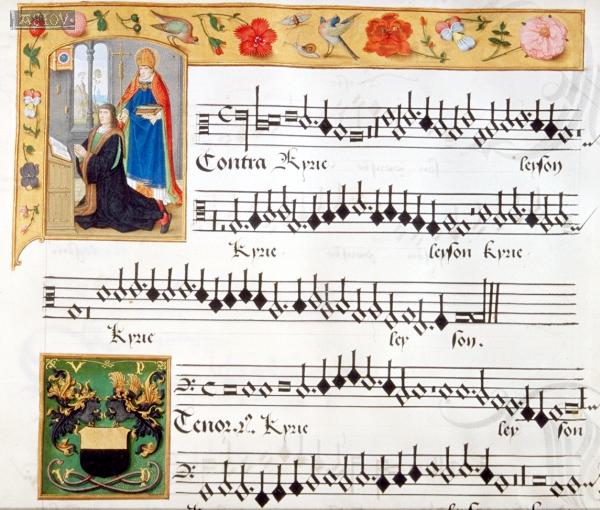 Contra Kyrie leyson
Kyrie leyson Kyrie
Kyrie ley son.
V P
Tenor Kyrie ley son